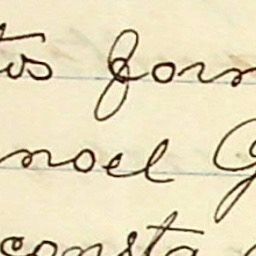 tos for
noel G
consta